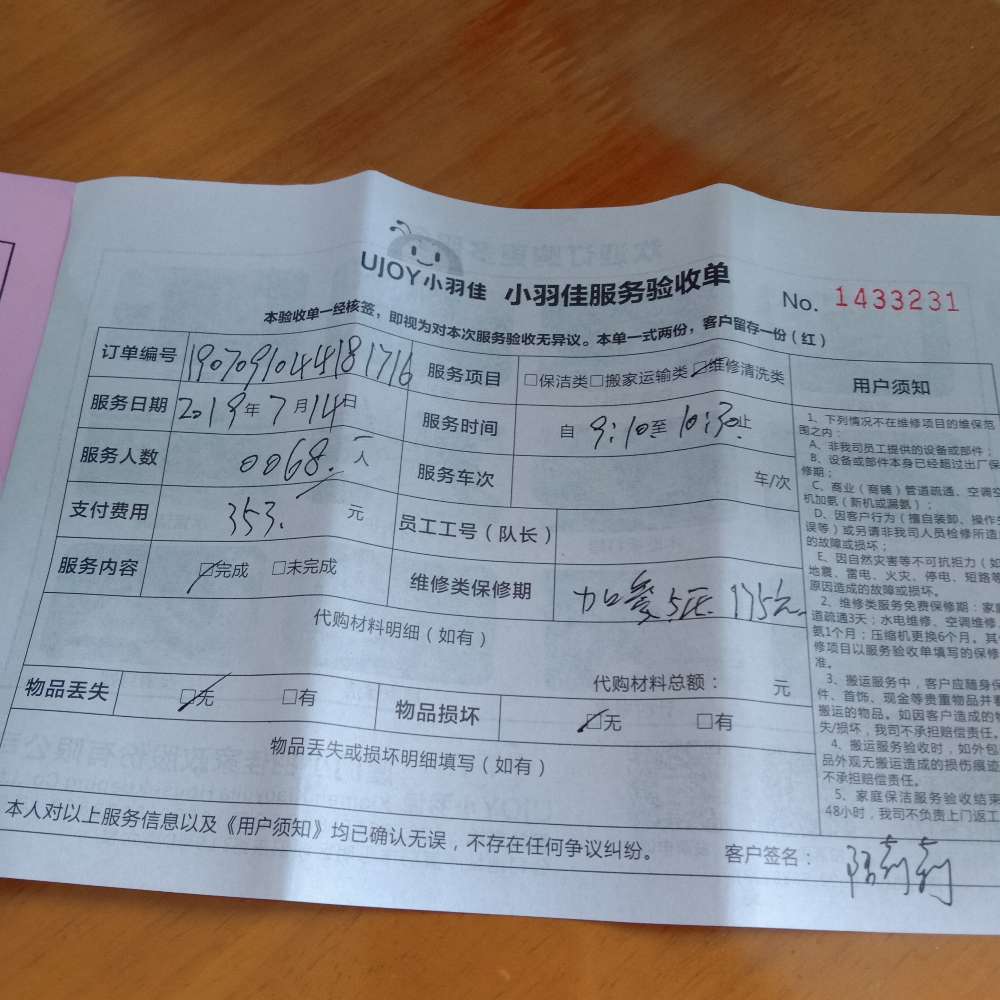 UJOY小羽佳 小羽佳服务验收单 No. 1433231
本验收单一经核签，即视为对本次服务验收无异议。本单一式两份，客户留存一份（红）
订单编号 190709104418 1716 服务项目 □保洁类□搬家运输类☑维修清洗类
服务日期 2019年7月14日 服务时间 自 9:10至 10:30止
服务人数 0068. 一人 服务车次 车/次
支付费用 353. 元 员工工号（队长）
服务内容 ☑完成 □未完成 维修类保修期 175元
代购材料明细（如有）
代购材料总额： 元
物品丢失 ☑无 □有 物品损坏 ☑无 □有
物品丢失或损坏明细填写（如有）
本人对以上服务信息以及《用户须知》均已确认无误，不存在任何争议纠纷。 客户签名：
用户须知
1、下列情况不在维修项目的维保范
围之内：
A、非我司员工提供的设备或部件；
B、设备或部件本身已经超过出厂保
修期；
C、商业（商铺）管道疏通、空调空
机加氨（新机或漏氨）；
D、因客户行为（擅自装卸、操作
误等）或另请非我司人员检修所造
的故障或损坏；
E、因自然灾害等不可抗拒力（如
地震、雷电、火灾、停电、短路等
原因造成的故障或损坏。
2、维修类服务免费保修期：家庭
道疏通3天；水电维修、空调维修
氨1个月；压缩机更换6个月。其
修项目以服务验收单填写的保修
准。
3、搬运服务中，客户应随身保
件、首饰、现金等贵重物品并
搬运的物品。如因客户造成的
失/损坏，我司不承担赔偿责任。
4、搬运服务验收时，如外包
品外观无搬运造成的损伤痕迹
不承担赔偿责任。
5、家庭保洁服务验收结束
48小时，我司不负责上门返工